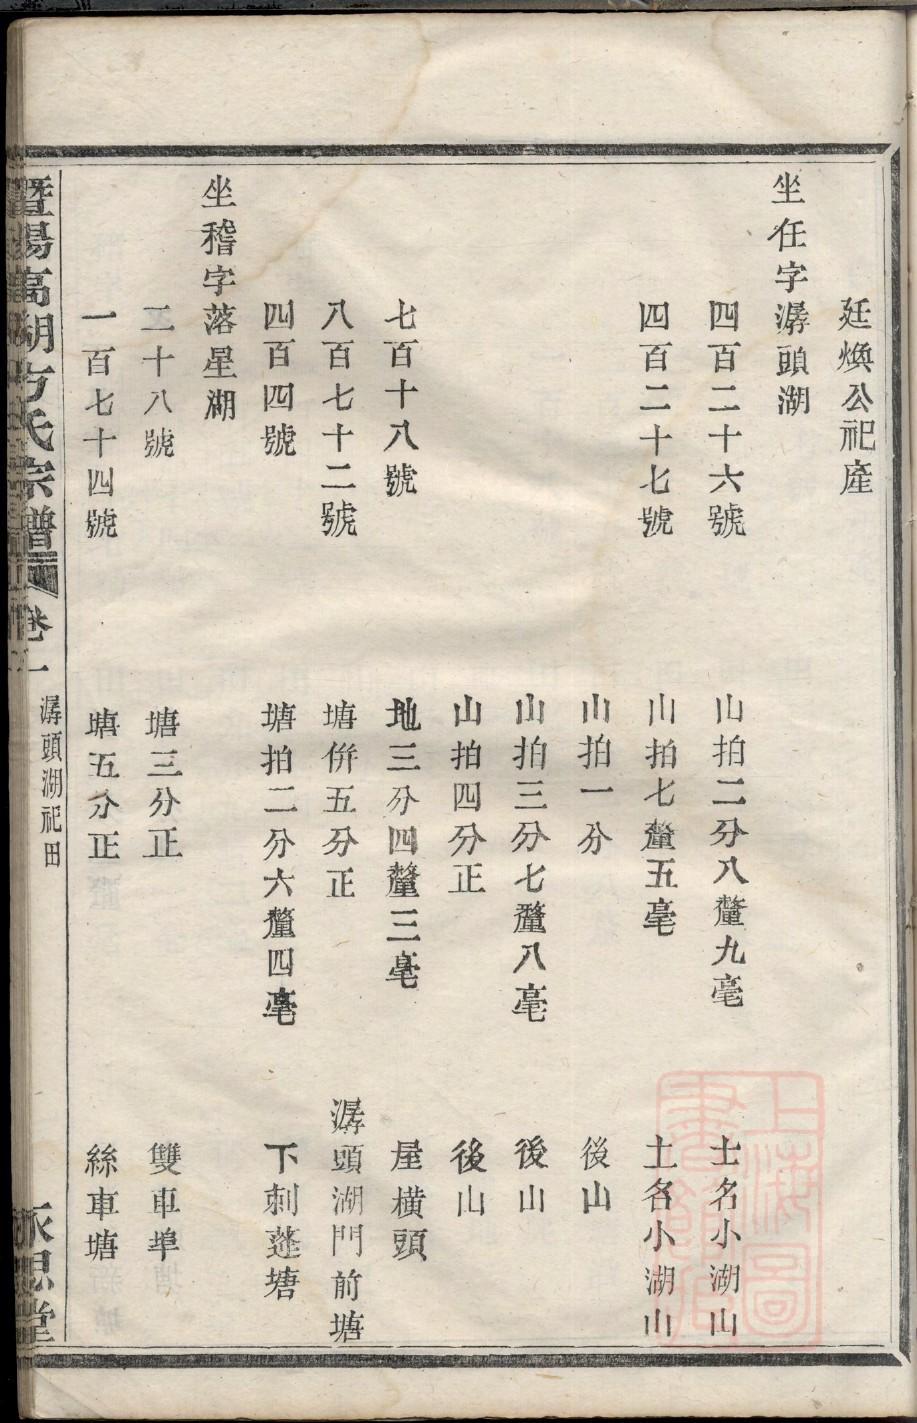 廷煥公祀產
坐任字潺頭湖
四百二十六號 山拍二分八釐九毫 土名小湖山
四百二十七號 山拍七釐五毫 土名小湖山
山拍一分 後山
山拍三分七釐八毫 後山
山拍四分正 後山
七百十八號 地三分四釐三毫 屋橫頭
八百七十二號 塘併五分正 潺頭湖門前塘
四百四號 塘拍二分六釐四毫 下刺蓬塘
坐稽字落星湖
二十八號 塘三分正 雙車埠
一百七十四號 塘五分正 絲車塘
暨陽高湖方氏宗譜 卷一 潺頭湖祀田 永思堂
上海圖書館藏